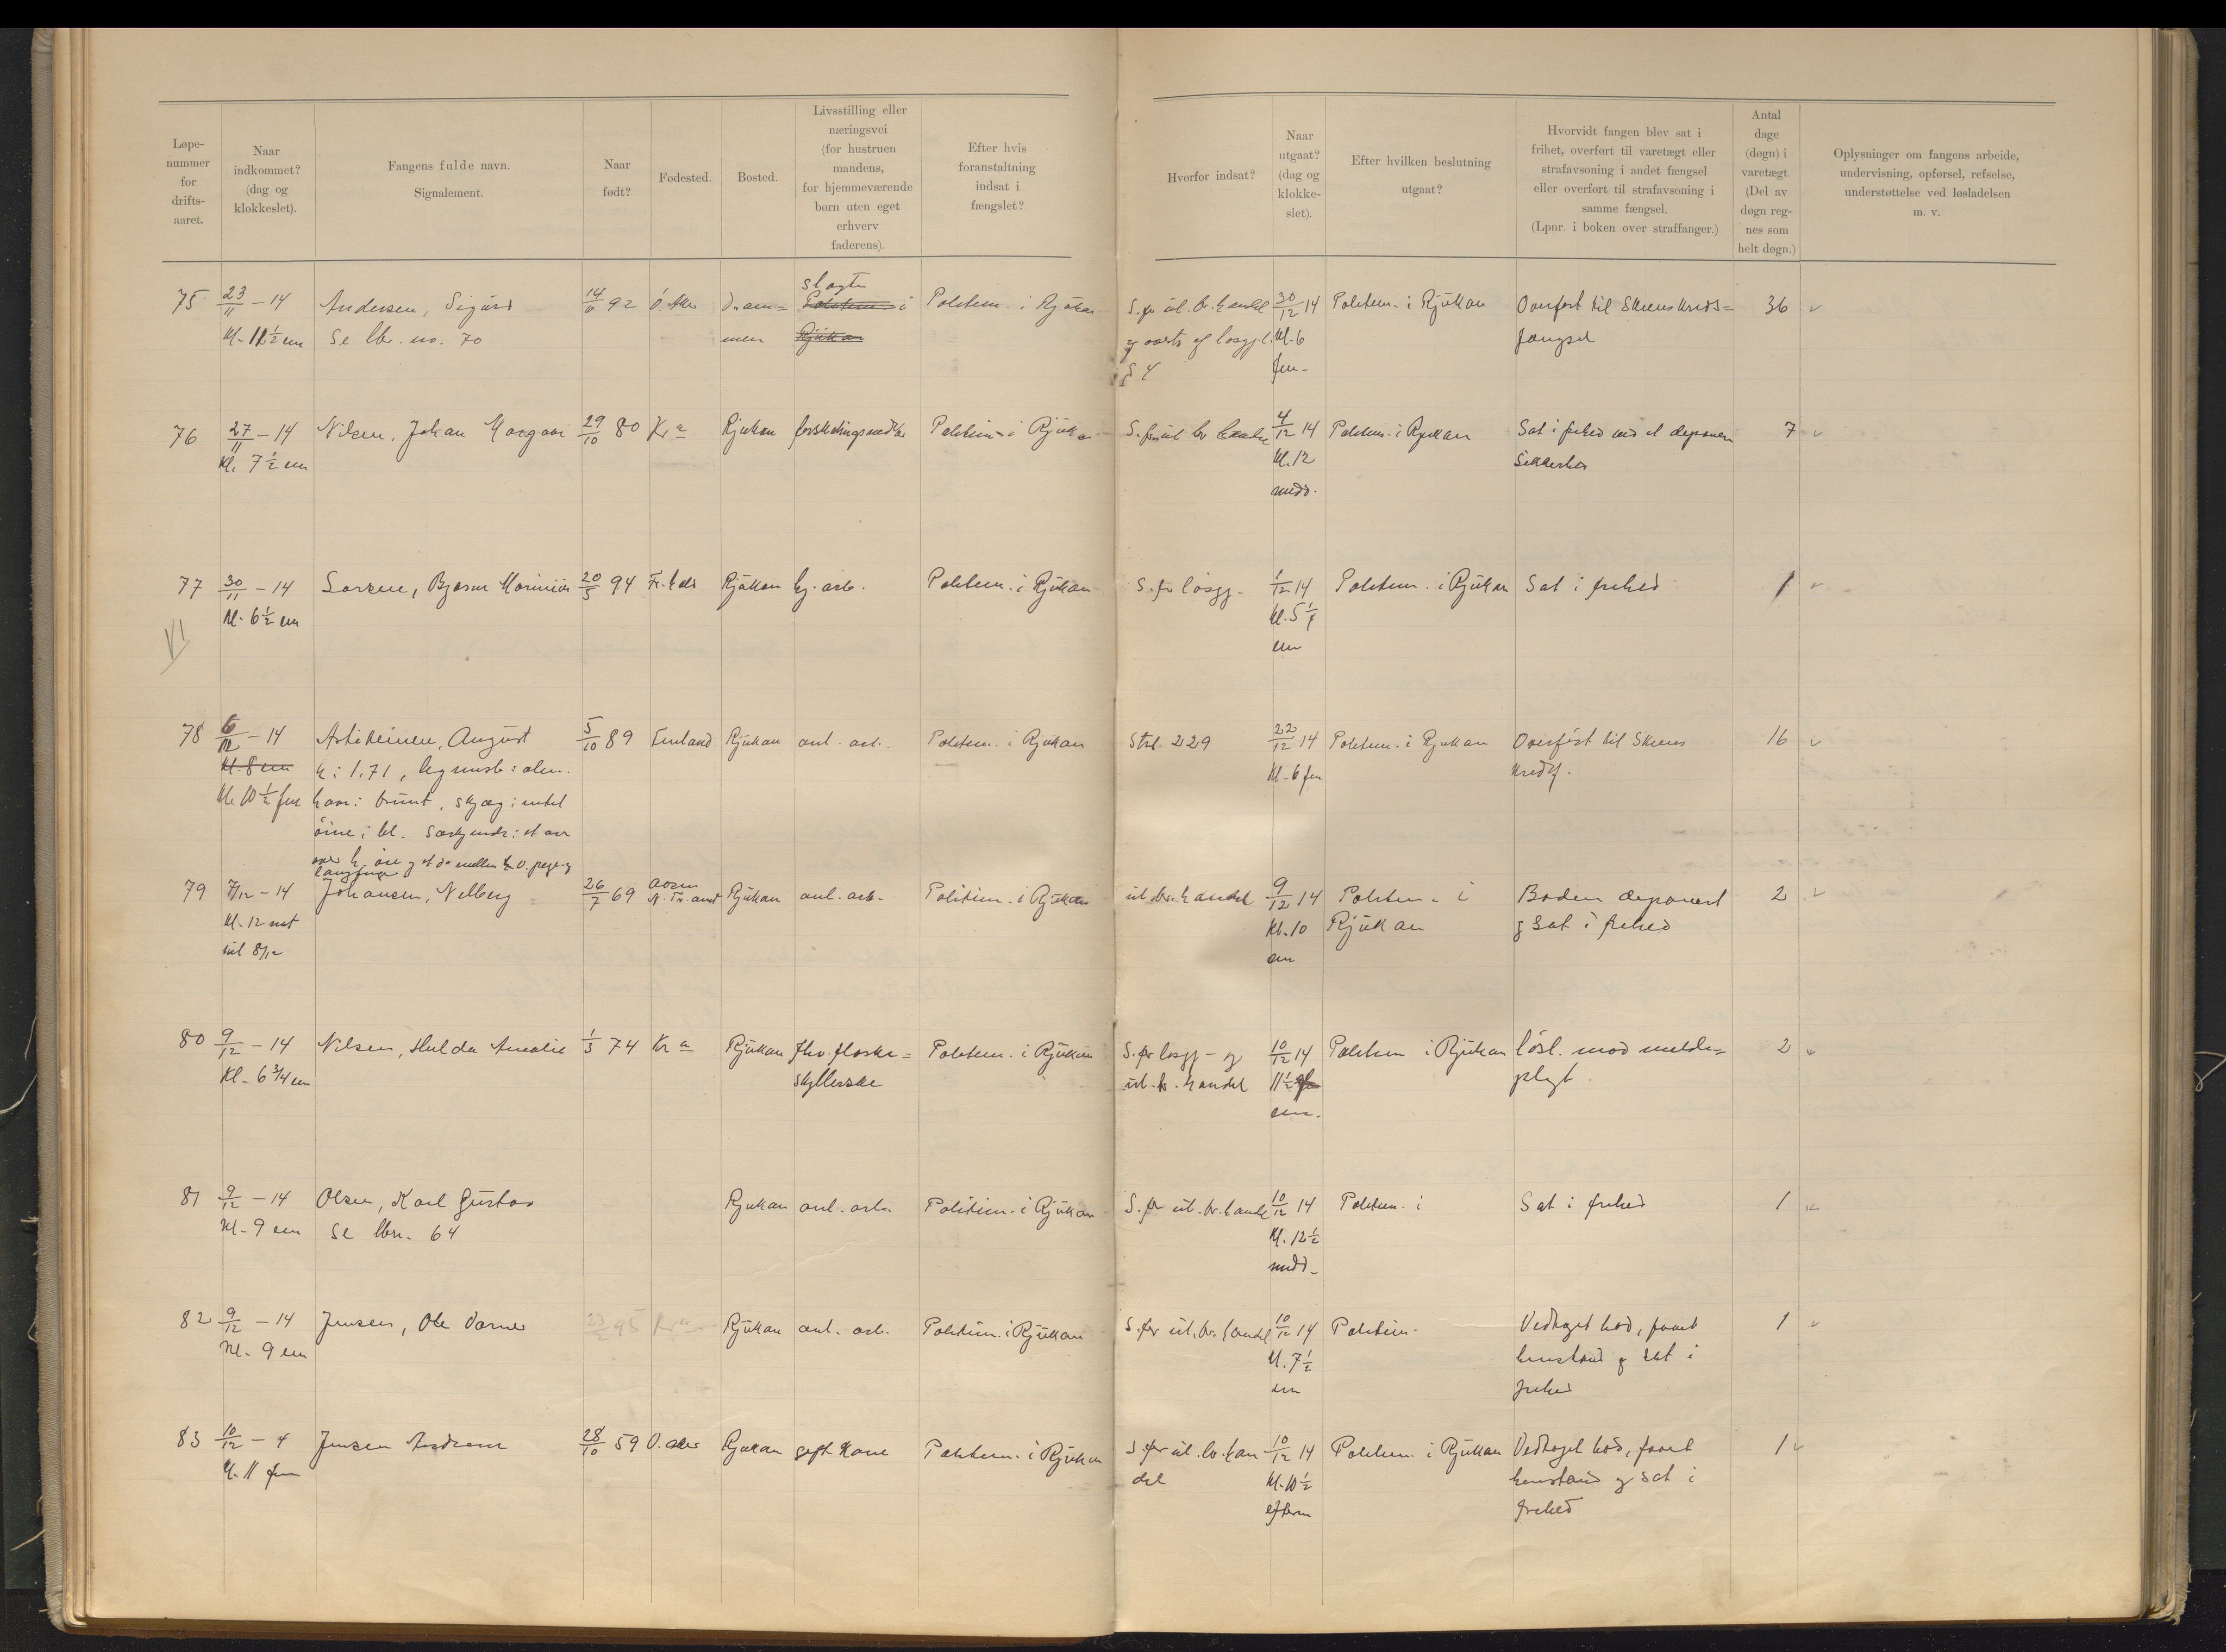 Løpe-
nummer
for
drifts-
aaret.
Naar
indkommet?
(dag og
klokkeslet).
Fangens fulde navn.
Signalement.
Naar
født?
Fødested.
Bosted.
Livsstilling eller
næringsvei
(for hustruen
mandens,
for hjemmeværende
børn uten eget
erhverv
faderens).
Efter hvis
foranstaltning
indsat i
fængslet?
Hvorfor indsat?
Naar
utgaat?
(dag og
klokke-
slet).
Efter hvilken beslutning
utgaat?
Hvorvidt fangen blev sat i
frihet, overført til varetægt eller
strafavsoning i andet fængsel
eller overført til strafavsoning i
samme fængsel.
(Lpnr. i boken over straffanger.)
Antal
dage
(døgn) i
varetægt.
(Del av
døgn reg-
nes som
helt døgn.)
Oplysninger om fangens arbeide,
undervisning, opførsel, refselse,
understøttelse ved løsladelsen
m. v.
75 23/11 - 14 Andersen, Sigurd 14/6 92 Ø. Aker Dram= slagter Politim. i Rjukan S. for ul. br. handel 30/12 14 Politim. i Rjukan Overført til Skiens kreds= 36
Kl. 11 1/2 em Se lbr. no. 70 men Rjukan Kl. 6 fængsel
§ 4 fm.
76 27/11 - 14 Nilsen, Johan 29/10 80 Kr a Rjukan Politim. i Rjukan S. for ul br handel 4/12 14 Politim. i Rjukan Sat i frihed 7
Kl. 7 1/2 em Kl. 12 Sikkerhed
midd.
77 30/11 - 14 Bjarne 20/5 94 Fr. hald Rjukan hj. arb. Politim. i Rjukan S. for løsgj. 1/12 14 Politim. i Rjukan Sat i frihed 1
Kl. 6 1/2 em Kl. 5
em
78 6/12 - 14 August 5/10 89 Finland Rjukan anl. arb. Politim. i Rjukan Strl. 229 22/12 14 Politim. i Rjukan Overført til Skiens 16
Kl. 8 em h: 1,71, leg. almi. Kl. 6 fm kredsf.
Kl. 10 1/2 fm haar: brunt, skjæg: intet
øine: bl. Særkjende: et arr
79 7/12 - 14 Johansen, 26/7 69 N. Tr. amt Rjukan anl. arb. Politim. i Rjukan ul. br. handel 9/12 14 Politim. i Boden deponert 2
Kl. 12 nat Kl. 10 Rjukan og sat i frihed
til 8/12 em
80 9/12 - 14 Nilsen, Hulda Amalie 1/3 74 Kr a Rjukan fhv. flaske= Politim. i Rjukan S. for løsgj. og 10/12 14 Politim i Rjukan løsl. mod melde= 2
Kl. 6 3/4 em skyllerske ul. br. handel 11 1/2 pligt
em.
81 9/12 - 14 Olsen, Karl Gustav Rjukan anl. arb. Politim. i Rjukan S. for ul. br. handel 10/12 14 Politim. i Sat i frihed 1
Kl. 9 em Se lbn. 64 Kl. 12 1/2
midd.
82 9/12 - 14 Jensen, Ole 95 Kr a Rjukan anl. arb. Politim. i Rjukan S. for ul. br. handel 10/12 14 Politim. Vedtaget bod, faaet 1
Kl. 9 em Kl. 7 1/2 henstand og sat i
em frihed
83 10/12 - 4 Jensen 28/10 59 Ø. Aker Rjukan gift kone Politim. i Rjukan S. for ul. br. han 10/12 14 Politim. i Rjukan Vedtaget bod, faaet 1
Kl. 11 fm del Kl. 10 1/2 henstand og sat i
efterm frihed